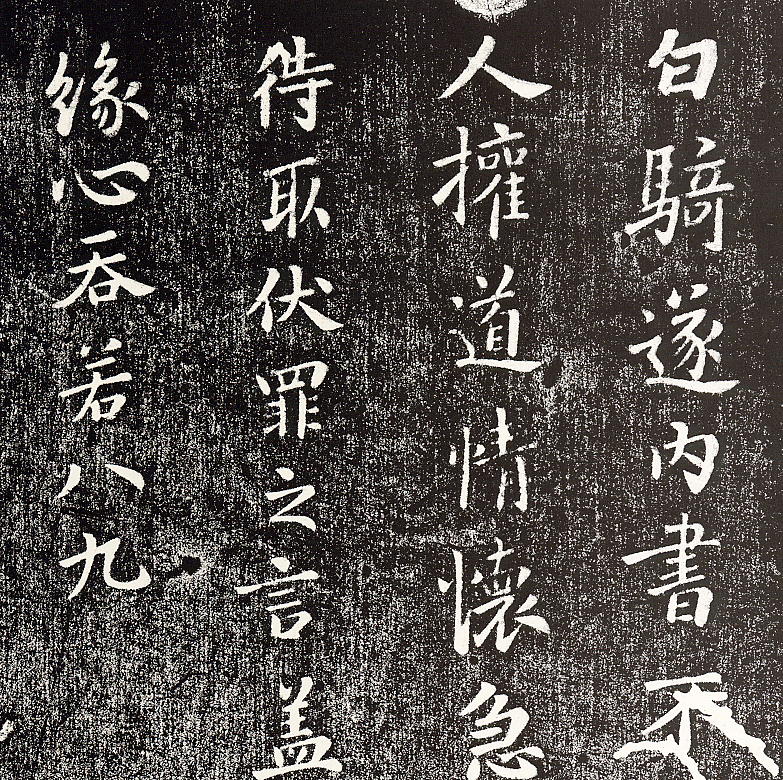 白騎遂內書不
人擁道情懷急
待取伏罪之言盖
緣心吞若八九